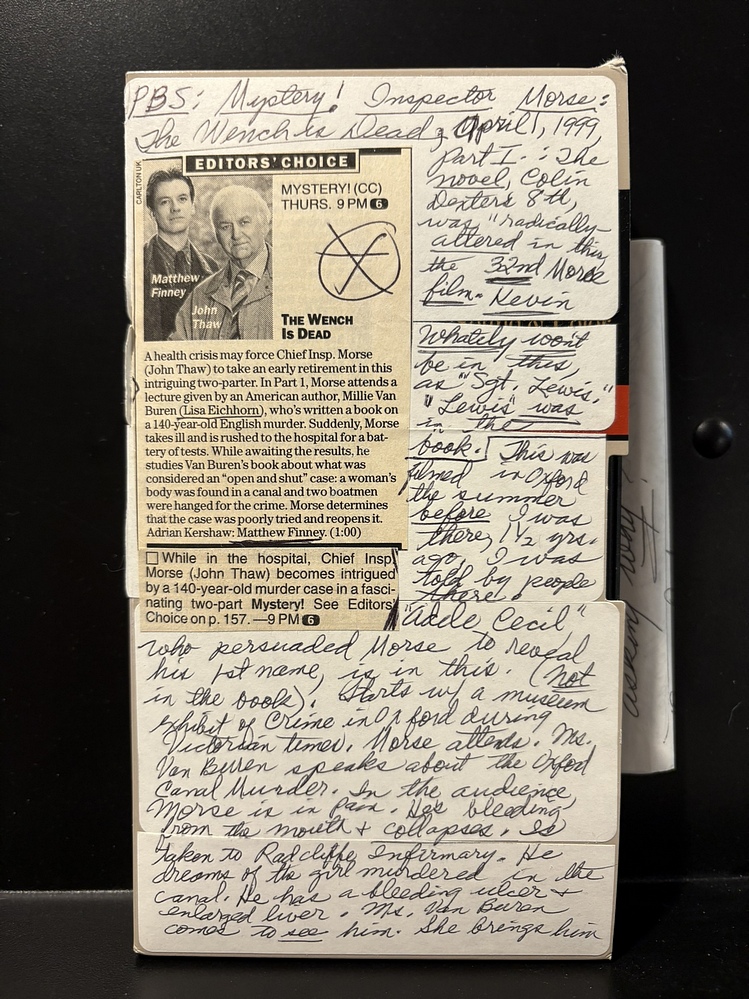 PBS: Mystery! Inspector Morse:
The Wench is Dead, April 1, 1999,
Part I.: The
novel, Colin
Dexter's 8th,
was "radically-
altered in this,
the 32nd Morse
film. Kevin
Whately won't
be in this,
as "Sgt. Lewis."
"Lewis" was
in the
book. This was
filmed in Oxford
the summer
before I was
there, 1 1/2 yrs.
ago, I was
told by people
there.
CARLTON UK
EDITORS' CHOICE
MYSTERY! (CC)
THURS. 9 PM 6
Matthew
Finney
John
Thaw
THE WENCH
IS DEAD
A health crisis may force Chief Insp. Morse
(John Thaw) to take an early retirement in this
intriguing two-parter. In Part 1, Morse attends a
lecture given by an American author, Millie Van
Buren (Lisa Eichhorn), who's written a book on
a 140-year-old English murder. Suddenly, Morse
takes ill and is rushed to the hospital for a bat-
tery of tests. While awaiting the results, he
studies Van Buren's book about what was
considered an "open and shut" case: a woman's
body was found in a canal and two boatmen
were hanged for the crime. Morse determines
that the case was poorly tried and reopens it.
Adrian Kershaw: Matthew Finney. (1:00)
While in the hospital, Chief Insp.
Morse (John Thaw) becomes intrigued
by a 140-year-old murder case in a fasci-
nating two-part Mystery! See Editors'
Choice on p. 157.—9 PM 6
"Adele Cecil"
who persuaded Morse to reveal
his 1st name, is in this. (Not
in the book). Starts w/ a museum
exhibit of Crime in Oxford during
Victorian times. Morse attends. Ms.
Van Buren speaks about the Oxford
Canal Murder. In the audience,
Morse is in pain. He's bleeding
from the mouth & collapses. Is
taken to Radcliffe Infirmary. He
dreams of the girl murdered in the
canal. He has a bleeding ulcer &
enlarged liver. Ms. Van Buren
comes to see him. She brings him
asking why!